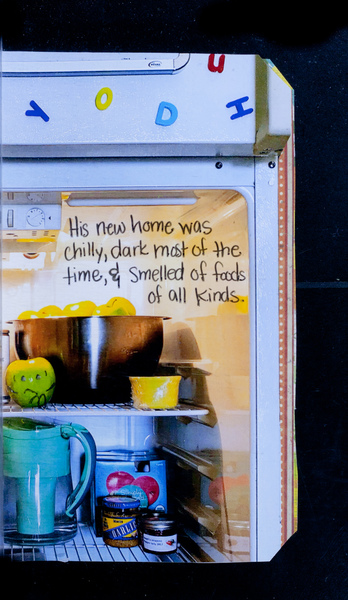 U
Y O D H
His new home was
chilly, dark most of the
time, & smelled of foods
of all kinds.
GARLIC